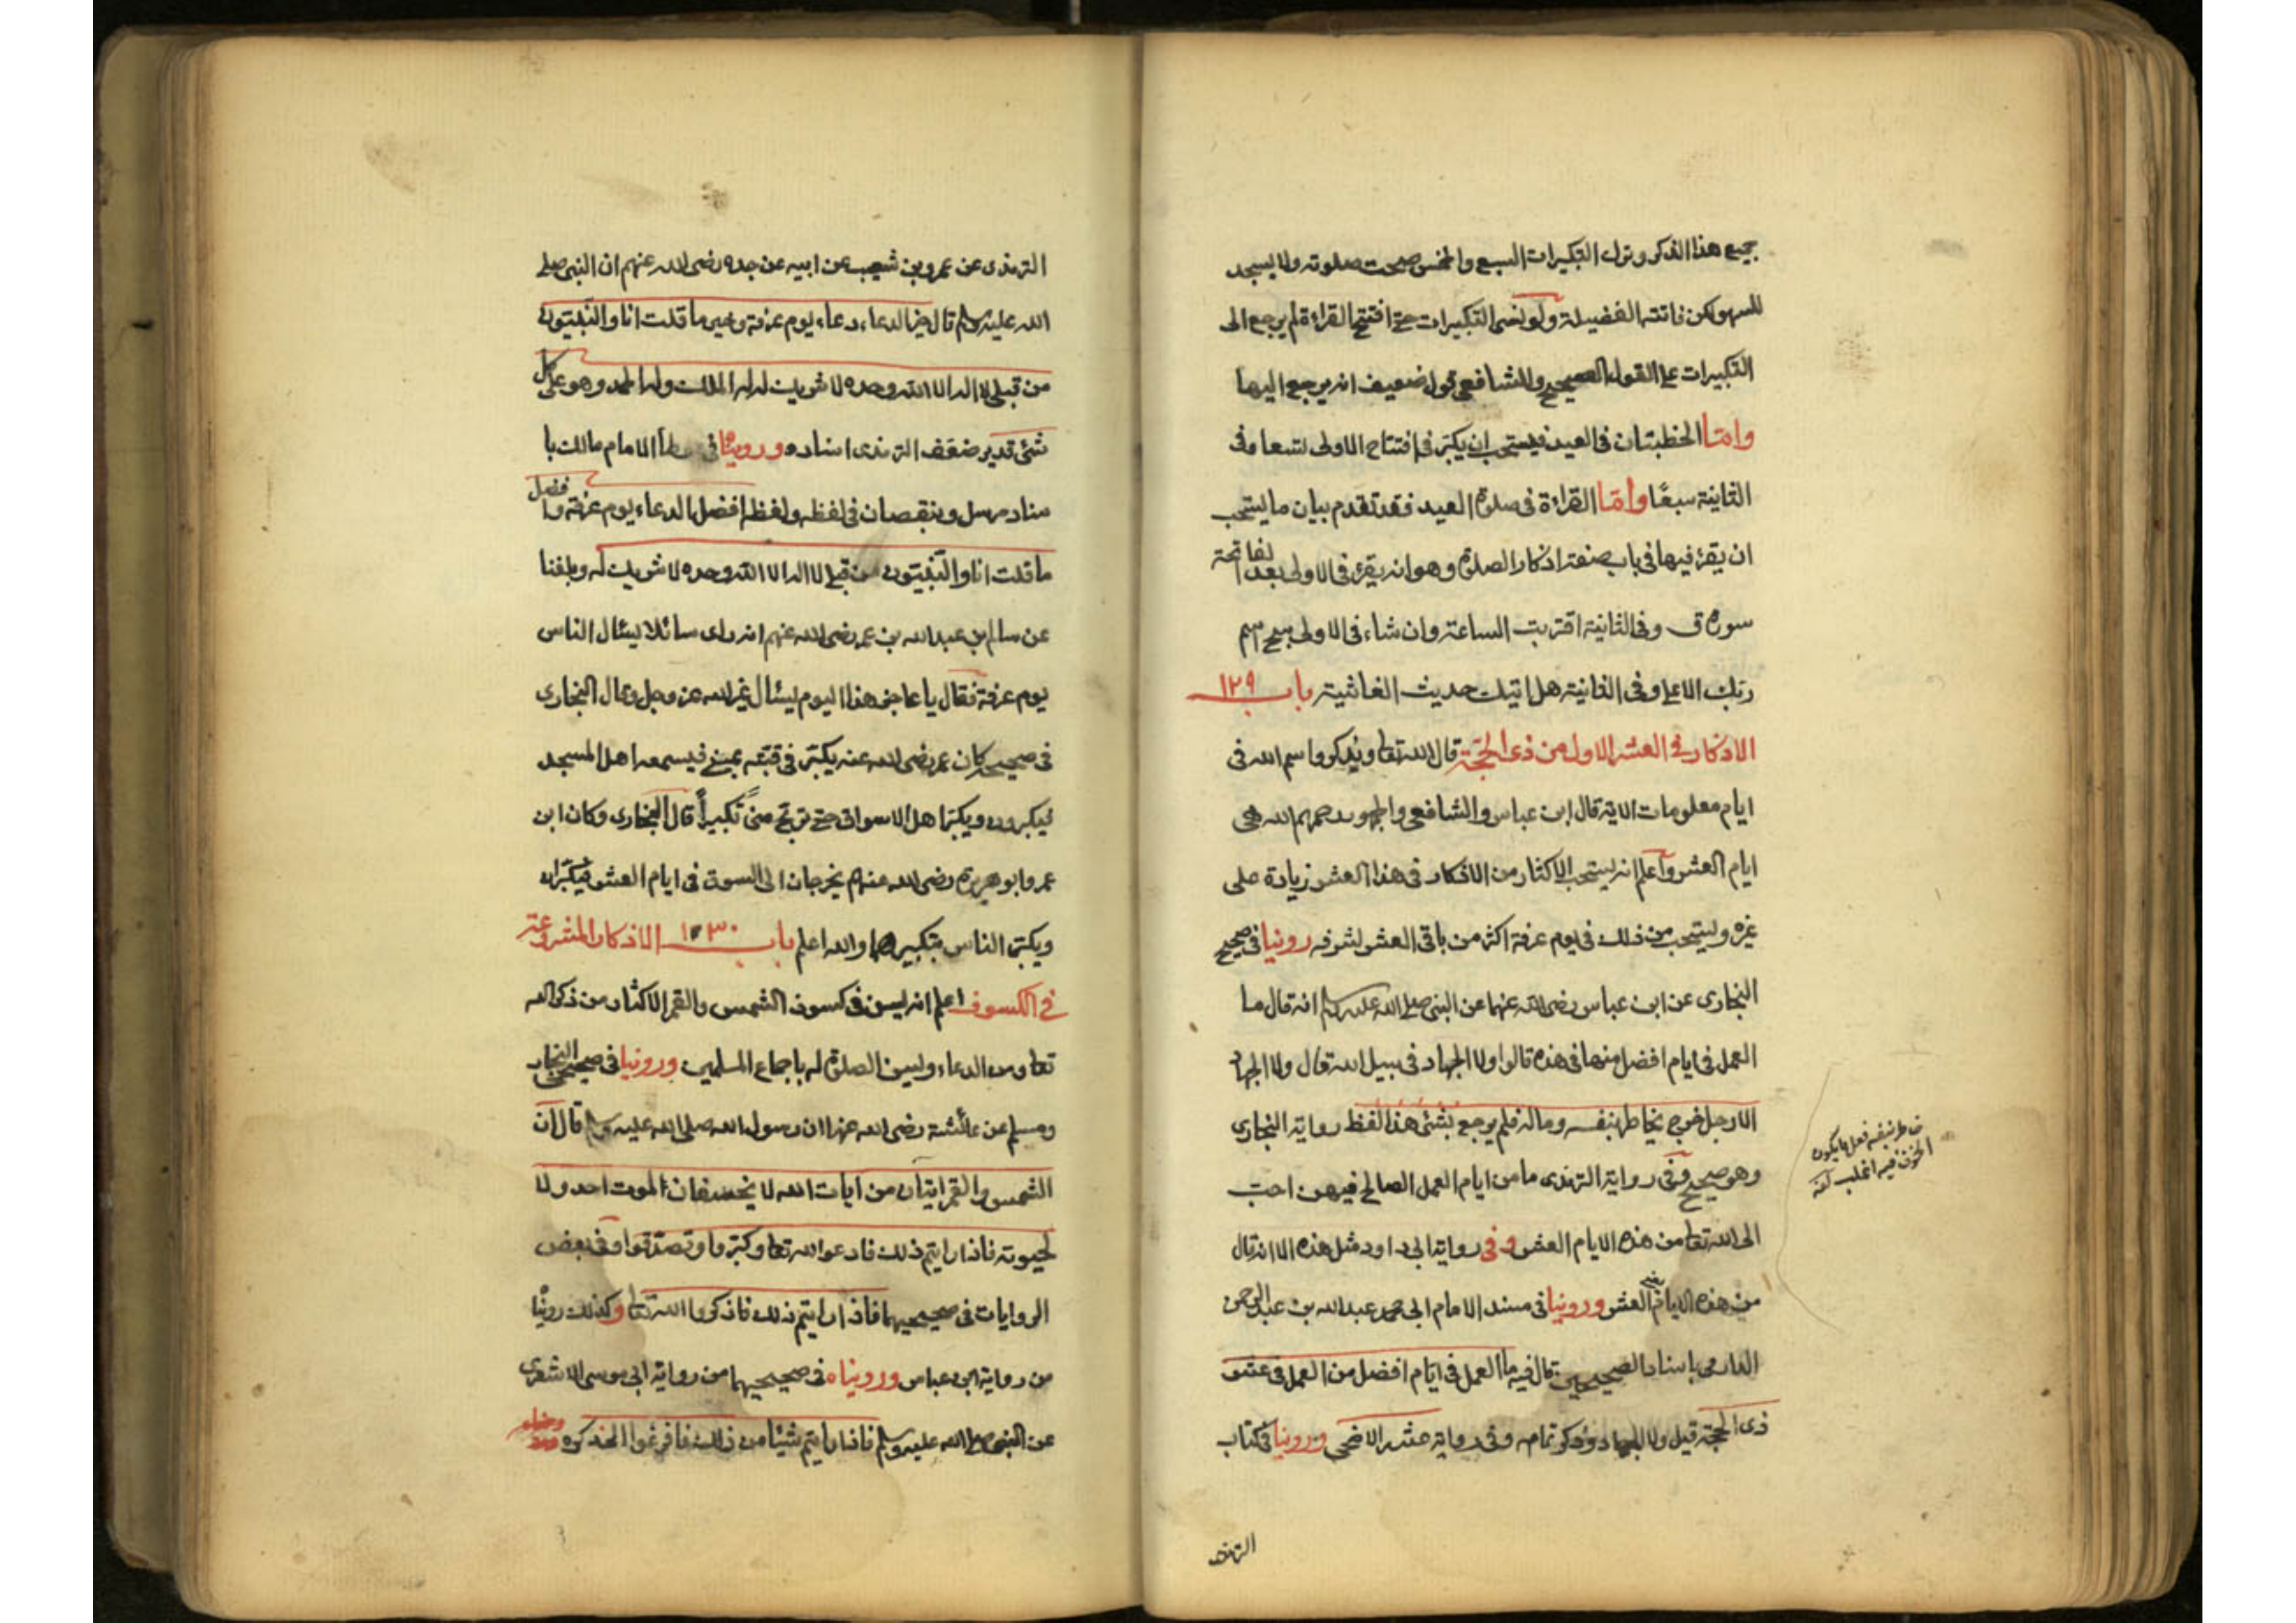 جميع هذا الذكر وترك التكبيرات السبع والخمس صحت صلوته ولا يسجد
للسهو لكن فاتته الفضيلة ولو نسى التكبيرات حتى افتتح القراءة لم يرجع الى
التكبيرات على القول الصحيح وللشافعى قول ضعيف انه يرجع اليها
وامّا الخطبتان فى العيد فيستحب ان يكبّر فى افتتاح الاولى تسعا وفى
الثانية سبعًا وامّا القراءة فى صلوة العيد فقد تقدم بيان ما يستحب
ان يقرء فيها فى باب صفة اذكار الصلوة وهو انه يقرء فى الاولى بعد الفاتحة
سورة ق وفى الثانية اقتربت الساعة وان شاء فى الاولى سبح اسم
ربك الاعلى وفى الثانية هل اتيك حديث الغاشية باب ١٢٩
الاذكار فى العشر الاول من ذى الحجّة قال الله تعا ويذكروا اسم الله فى
ايام معلومات الاية قال ابن عباس والشافعى والجمهور رحمهم الله هى
ايام العشر واعلم انه يستحب الاكثار من الاذكار فى هذا العشر زيادة على
غيره ويستحب من ذلك فى يوم عرفة اكثر من باقى العشر لشرفه روينا فى صحيح
البخارى عن ابن عباس رضى الله عنهما عن النبى صلى الله عليه وسلم انه قال ما
العمل فى ايام افضل منها فى هذه قالوا ولا الجهاد فى سبيل الله قال ولا الجهاد
الا رجل خرج يخاطر بنفسه وماله فلم يرجع بشئ هذا لفظ رواية البخارى
وهو صحيح وفى رواية الترمذى ما من ايام العمل الصالح فيهن احبّ
الى الله تعا من هذه الايام العشر و فى رواية ابى داود مثل هذه الا انه قال
من هذه الايام يعنى العشر وروينا فى مسند الامام ابى محمد عبد الله بن عبد الرحمن
الدارمى باسناد الصحيحين قال فيه ما العمل فى ايّام افضل من العمل فى عشر
ذى الحجة قيل ولا الجهاد وذكر تمامه وفى رواية عشر الاضحى وروينا فى كتاب
الترمذى
خاطر بنفسه فعل ما يكون
الخوف فيه اغلب
الترمذى عن عمرو بن شعيب عن ابيه عن جده رضى الله عنهم ان النبى صلى
الله عليه وسلم قال خير الدعاء دعاء يوم عرفة وخير ما قلت انا والنّبيّون
من قبلى لا اله الا الله وحده لا شريك له له الملك وله الحمد وهو على كل
شئ قدير ضعّف الترمذى اسناده وروينا فى موطأ الامام مالك با
سناد مرسل وبنقصان فى لفظه ولفظه افضل الدعاء يوم عرفة وافضل
ما قلت انا والنّبيّون من قبلى لا اله الا الله وحده لا شريك له وبلغنا
عن سالم بن عبد الله بن عمر رضى الله عنهم انه راى سائلا يسئال الناس
يوم عرفة فقال يا عاجز هذا اليوم يسئال غير الله عز وجل وقال البخارى
فى صحيحه كان عمر رضى الله عنه يكبّر فى قبّته بمنى فيسمعه اهل المسجد
فيكبرون ويكبّر اهل الاسواق حتى ترتجّ منىً تكبيراً قال البخارى وكان ابن
عمر وابو هريرة رضى الله عنهم يخرجان الى السوق فى ايام العشر فيكبّران
ويكبّر الناس بتكبيرهما والله اعلم باب ١٣٠ الاذكار المشروعة
فى الكسوف اعلم انه يسن فى كسوف الشمس والقمر الاكثار من ذكر الله
تعا ومن الدعاء ويسن الصلوة له باجماع المسلمين وروينا فى صحيحى البخارى
ومسلم عن عائشة رضى الله عنها ان رسول الله صلى الله عليه وسلم قال ان
الشمس والقمر ايتان من ايات الله لا يخسفان لموت احد ولا
لحيوته فاذا رايتم ذلك فادعوا الله تعا وكبّروا وتصدّقوا وفى بعض
الروايات فى صحيحيهما فاذا رايتم ذلك فاذكروا الله تعا وكذلك رويناه
من رواية ابن عباس وروينا ه فى صحيحيهما من رواية ابى موسى الاشعرى
عن النبى صلى الله عليه وسلم فاذا رايتم شيئا من ذلك فافزعوا الى ذكره ودعائه